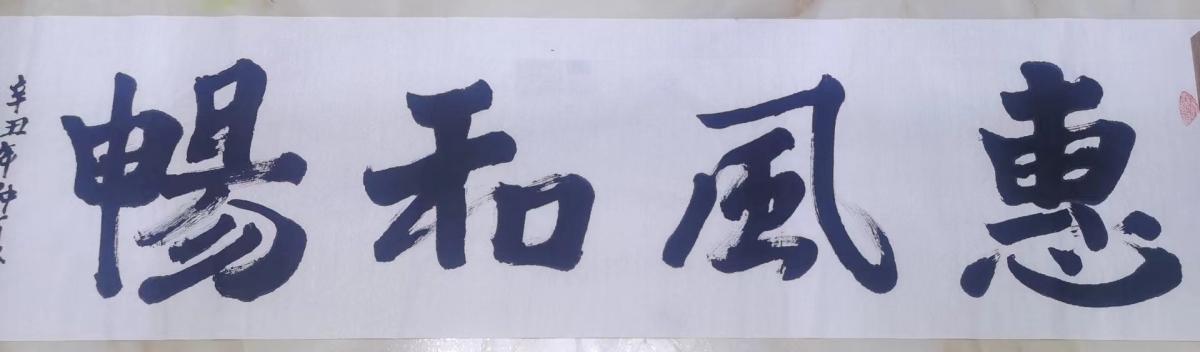 惠風和暢
辛丑年仲夏